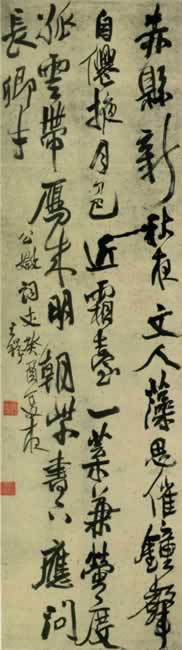 赤縣新秋夜文人藻思催鐘聲
自僊掖月色近霜臺一葉兼螢度
孤雲帶鴈來明朝紫書下應問
長卿才
公詞丈癸酉夏
王鐸